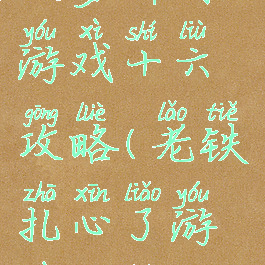 yóu xì shí liù
游戏十六
gōng lüè lǎo tiě
攻略(老铁
zhā xīn liǎo yóu
扎心了游